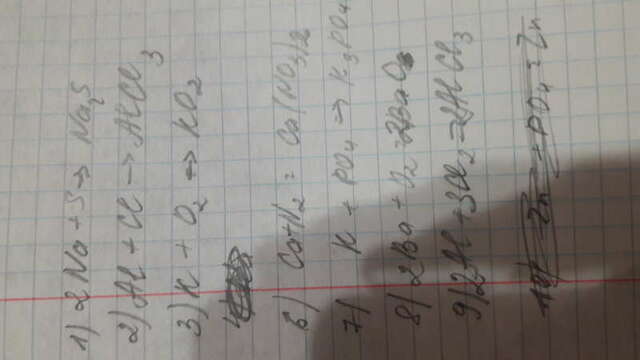 1) 2Na + S → Na₂S
2) Al + Cl → AlCl₃
3) K + O₂ → KO₂
6) Ca+N₂ = Ca(NO₃)₂
7) K + PO₄ → K₃PO₄
8) 2Ba + O₂ = 2BaO
9) 2Al + 3Cl₂ = 2AlCl₃
10) Zn + PO₄ = Zn